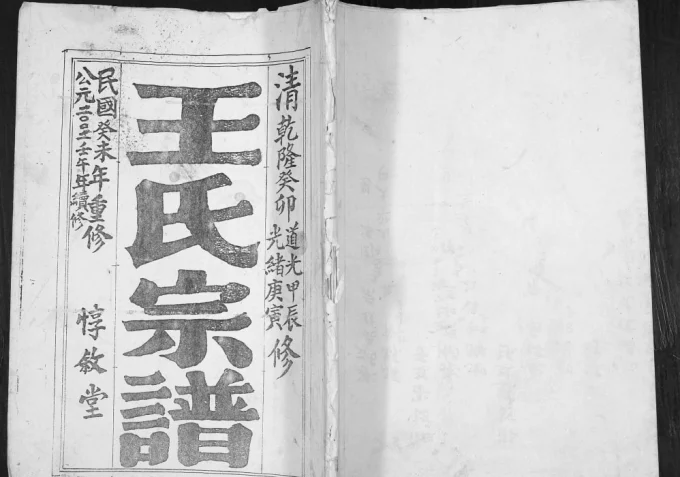 清乾隆癸卯
道光甲辰
光緒庚寅
修
王氏宗譜
民國癸未年重修
公元二00二壬午年續修
惇敘堂